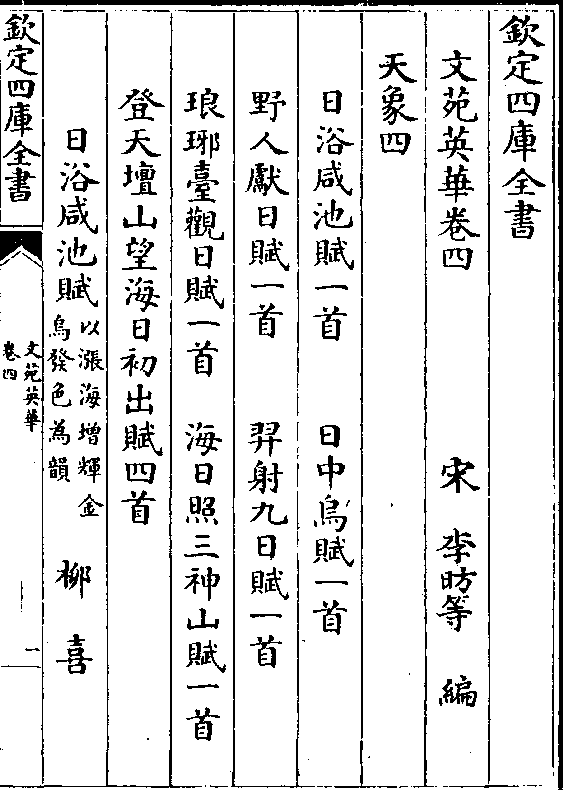 欽定四庫全書
文苑英華卷四
宋 李昉等 編
天象四
日浴咸池賦一首 日中烏賦一首
野人獻日賦一首 羿射九日賦一首
琅琊臺觀日賦一首 海日照三神山賦一首
登天壇山望海日初出賦四首
日浴咸池賦以漲海增輝金烏發色為韻 柳喜
欽定四庫全書
文苑英華
卷四
一